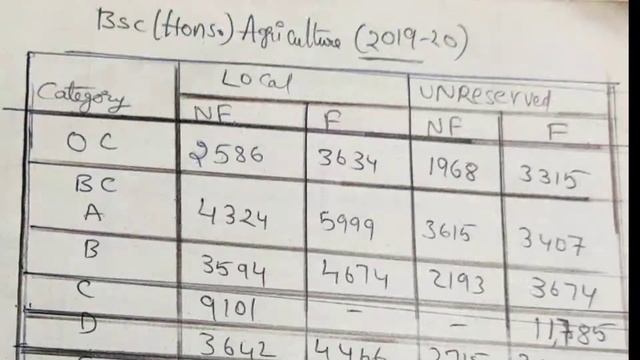 Bsc (Hons.) Agriculture (2019-20)
Category Local UNReserved
NF F NF F
OC 2586 3634 1968 3315
BC
A 4324 5999 3615 3407
B 3594 4674 2193 3674
C 9101 - - 11,785
D 3642 4466